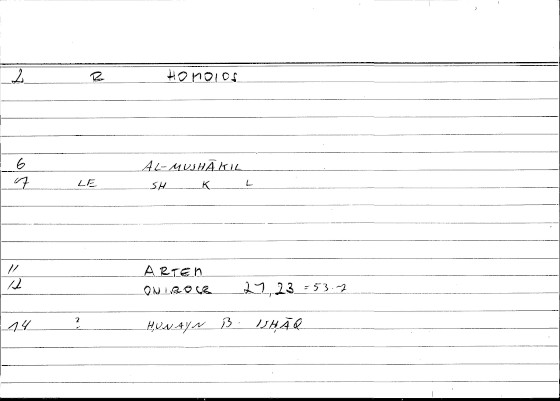 2 R HOMOIOS
6 AL-MUSHĀKIL
7 LE SH K L
11 ARTEM
12 ONIROCR 27,23 = 53.7
14 ? ḤUNAYN B. ISḤĀQ